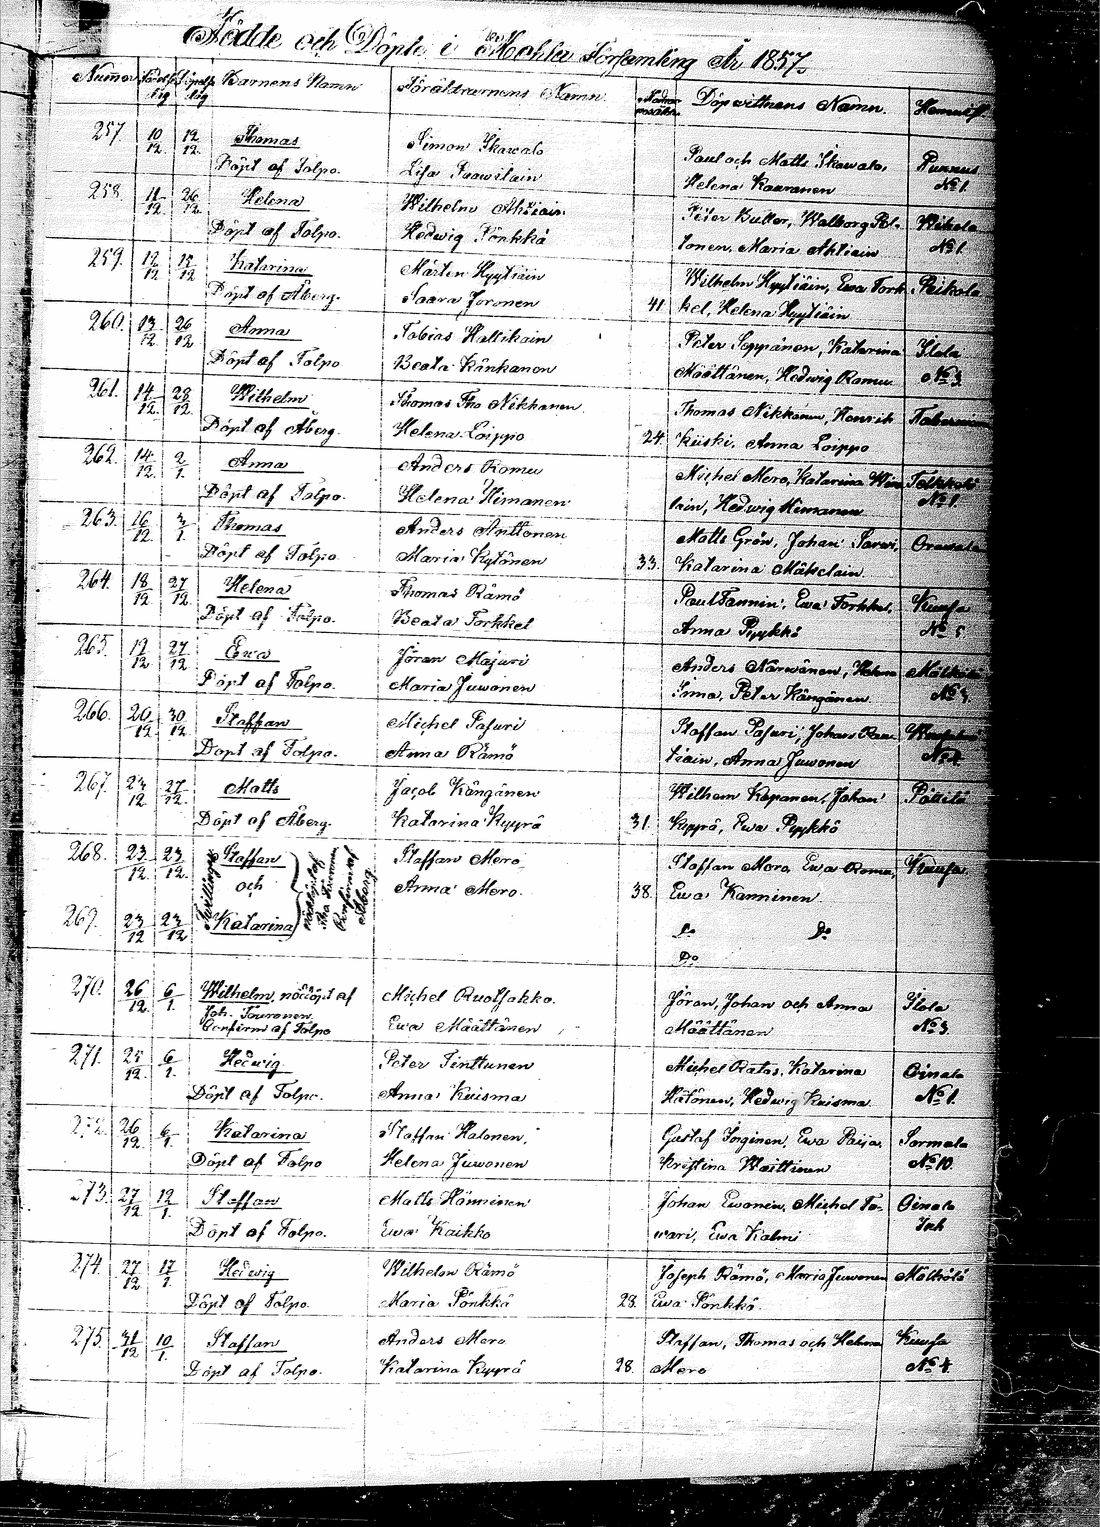 Födde och Döpte i Mohla Församling År 1857.
Numer Född. dag Döpt. dag Barnens Namn Föräldrarnas Namn. Döpvittnens Namn. Hemvist.
257. 10/12 19/12 Thomas Simon Skawalo
Döpt af Tolpo. Lisa Paawilain Paul och Matts Skawalo, Punnus
Helena Kauranen No 1.
258. 11/12 26/12 Helena Wilhelm Ahtiain
Döpt af Tolpo. Hedwig Pönkkä Peter Buller, Walborg Pel-
tonen, Maria Ahtiain No 1.
259. 12/12 19/12 Katarina Mårten Hyytiäin Wilhelm Hyytiäin, Ewa Tork- Peikola
Döpt af Åberg. Saara Joronen 41 kel, Helena Hyytiäin
260. 13/12 26/12 Anna Tobias Hattikain Peter Seppänen, Katarina Ilola
Döpt af Tolpo Beata Känkanen Määttänen, Hedwig Romu No 3.
261. 14/12 28/12 Wilhelm Thomas Tho Nikkanen Thomas Nikkanen, Henrik
Döpt af Åberg. Helena Loippo 24 Kiiski, Anna Loippo
262. 14/12 2/1. Anna Anders Romu Michel Mero, Katarina
Döpt af Tolpo. Helena Himanen lain, Hedwig Himanen No 1.
263. 16/12 3/1. Thomas Anders Anttonen Matts Grön, Johan Sarvi, Orawala
Döpt af Tolpo. Maria Kylänen 33. Katarina Mätelain
264. 18/12 27/12 Helena Thomas Rämö Paul Tannin, Ewa Torkkel, Kuusa
Döpt af Tolpo. Beata Torkkel Anna Pyykkö No 5
265. 19/12 27/12 Ewa Jöran Majuri Anders Närwänen, Helena Mälkölä
Döpt af Tolpo. Maria Juwonen Inna, Peter Kängänen No 3.
266. 20/12 30/12 Staffan Michel Pasuri Staffan Pasuri, Johan Rau-
Döpt af Tolpo. Anna Rämö tiain, Anna Juwonen No 4.
267. 23/12 27/12 Matts Jacob Kängänen Wilhem Kopanen, Johan Pällilä
Döpt af Åberg. Katarina Kyyrö 31. Kyyrö, Ewa Pyykkö
268. 23/12 23/12 Staffan Staffan Mero Staffan Mero, Ewa Romu, Kuusa
Twillingar och nöddöpt af Anna Mero. 38. Ewa Kanninen
Confirm af Åberg
269. 23/12 23/12 Katarina Do Do
Do
270. 26/12 6/1. Wilhelm, nöddöpt af Michel Ruotsakko. Jöran, Johan och Anna Ilola
Joh. Touronen
Confirm af Tolpo Ewa Määttänen Määttänen No 3.
271. 25/12 6/1. Hedwig Peter Tinttunen Michel Ratas, Katarina Oinala
Döpt af Tolpo. Anna Kuisma Hatonen, Hedwig Kuisma No 1.
272. 26/12 6/1. Katarina Staffan Hatonen, Gustaf Inginen, Ewa Paija, Sormula
Döpt af Tolpo Helena Juwonen Kristina Waittinen No 10.
273. 27/12 12/1. Staffan Matts Hänninen Johan Ewonin, Michel Ta- Oinala
Döpt af Tolpo. Ewa Kaikko wari, Ewa Kalmi Inh
274. 27/12 17/1. Hedwig Wilhelm Rämö Joseph Rämö, Maria Juwonen Mälkölä
Döpt af Tolpo. Maria Pönkkö 23. Ewa Pönkkö.
275. 31/12 10/1. Staffan Anders Mero Staffan, Thomas och Helena Kuusa
Döpt af Tolpo. Katarina Kyyrö 28. Mero No 4.